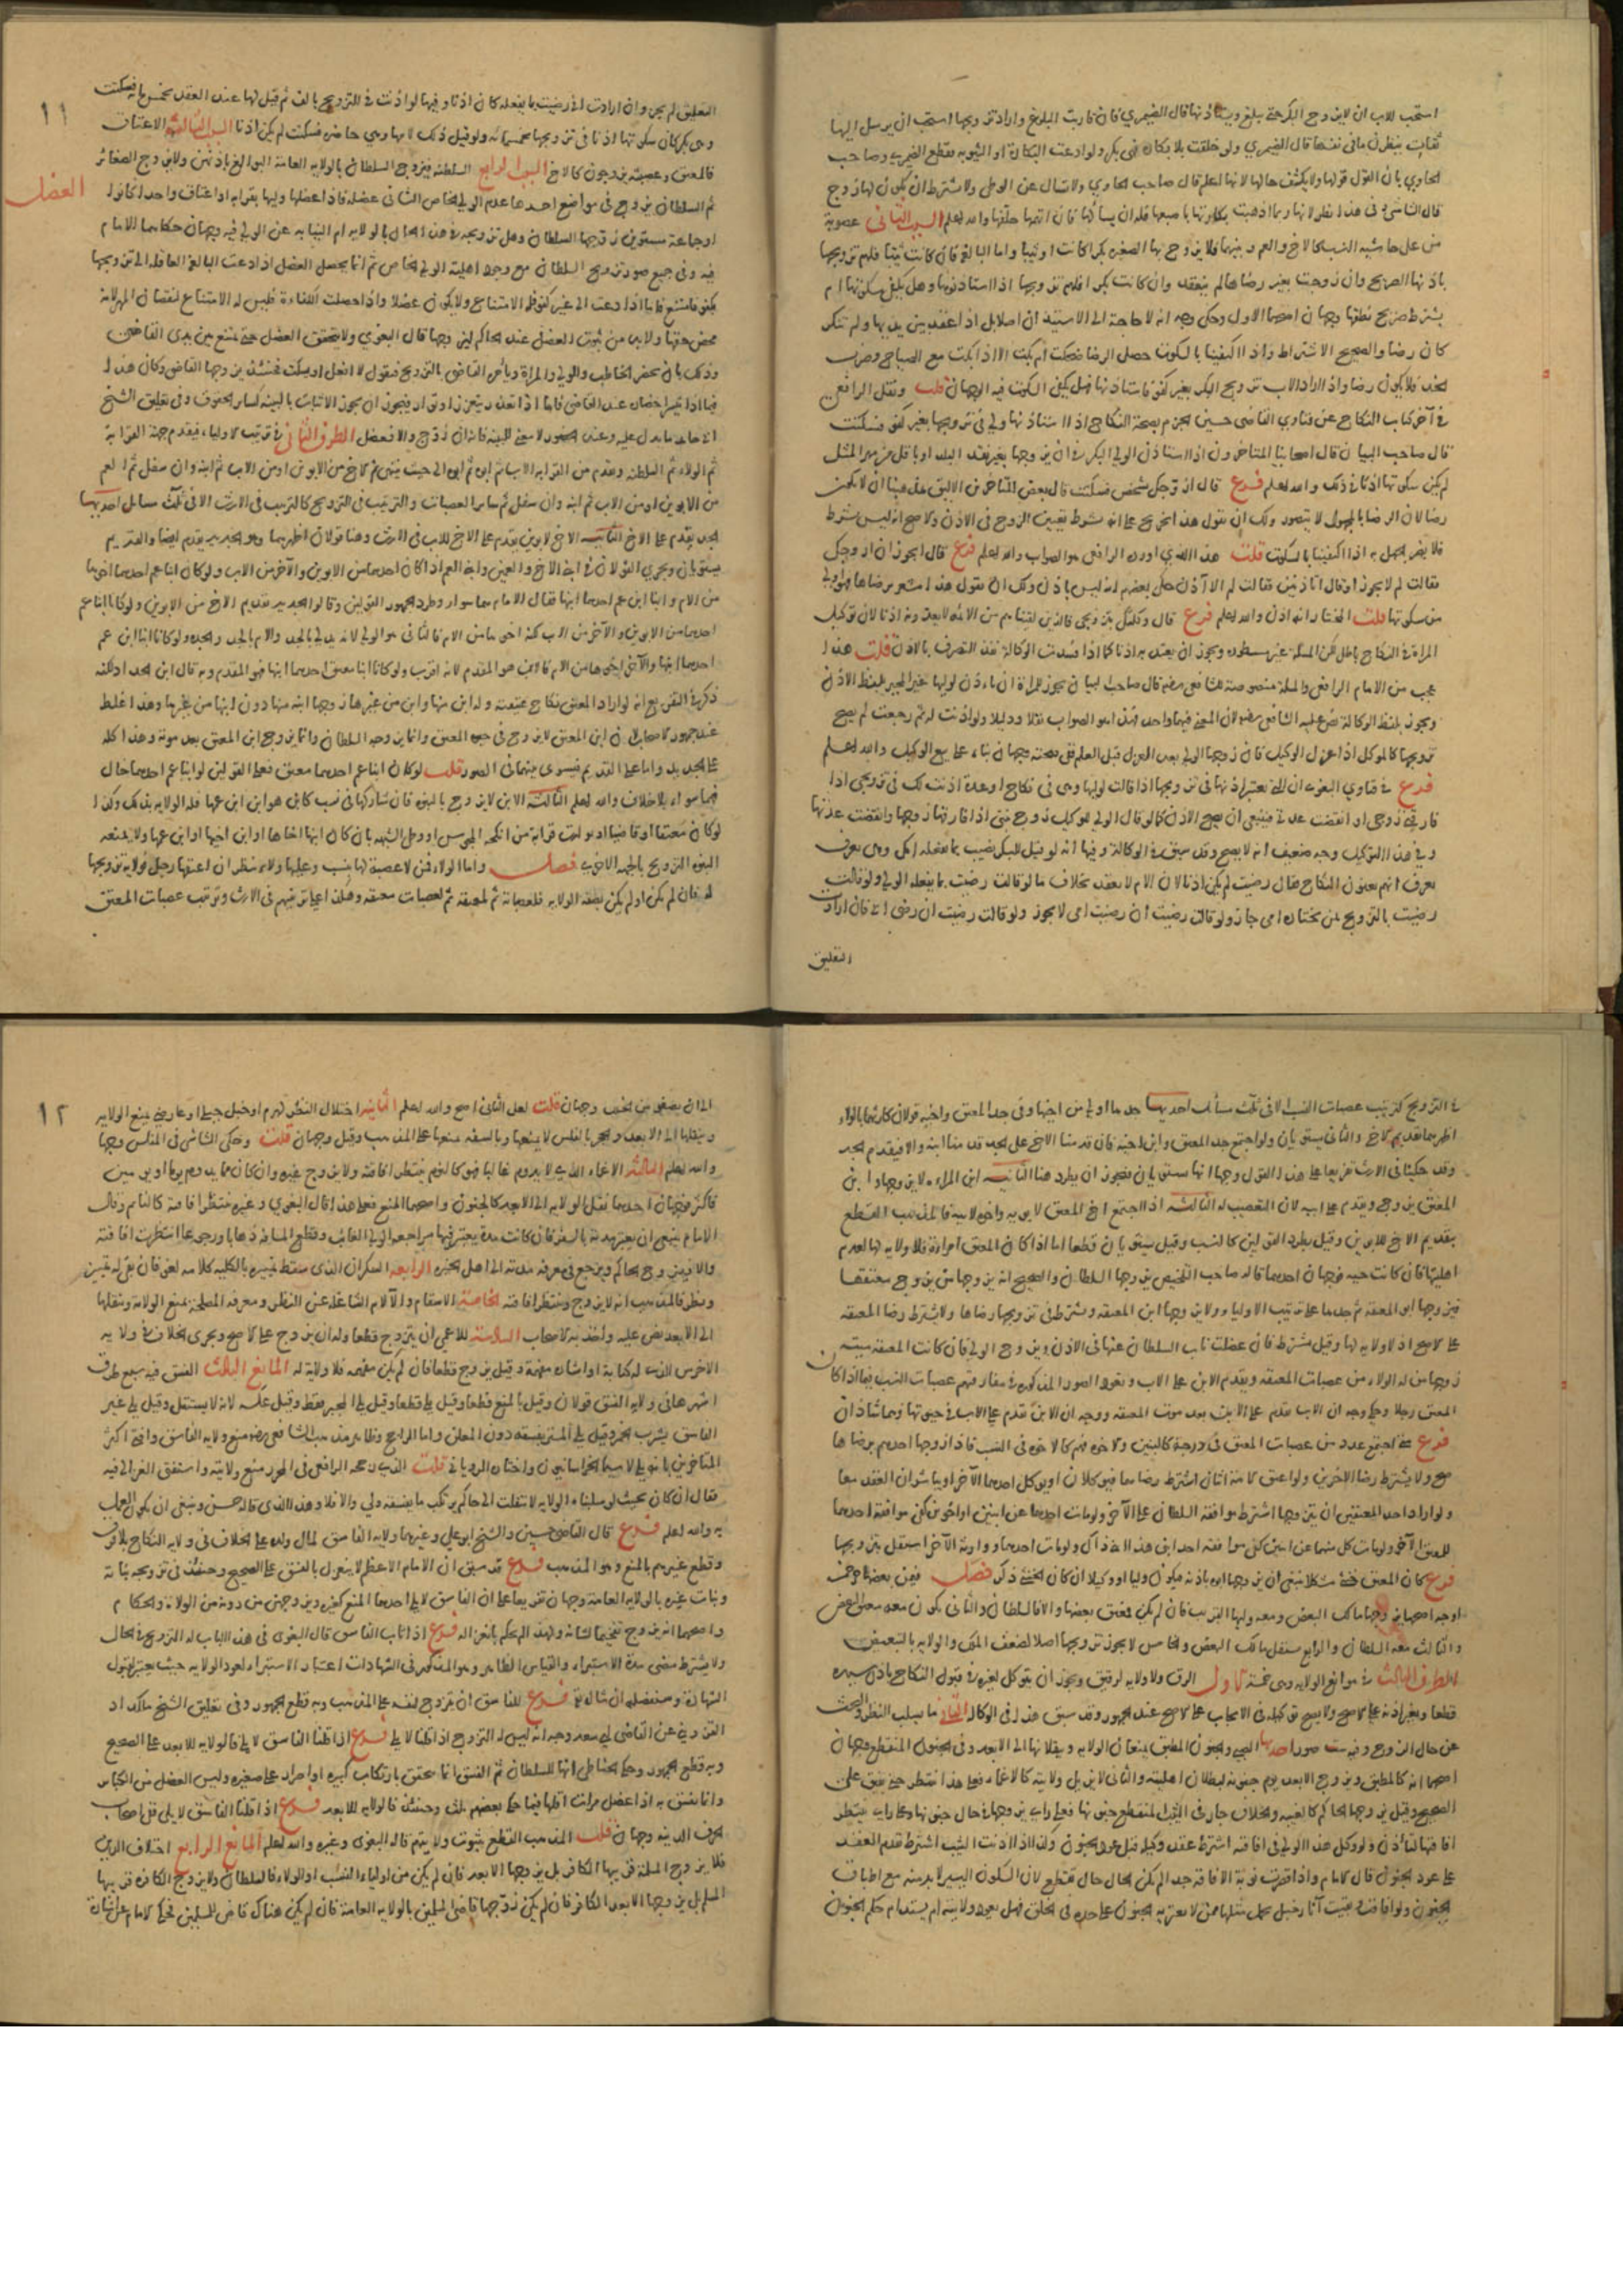 استحب للاب ان لا يزوج البكر حتى يبلغ ويستأذنها قال الصيمري فان قاربت البلوغ واراد تزويجها استحب ان يرسل اليها
ثقات ينظرن ما في نفسها قال الصيمري ولو خلقت بلا بكاره فهي بكر ولو ادعت البكارة او الثيوبه فقطع الصيمري وصاحب
الحاوي بان القول قولها ولا يكشف حالها لانها اعلم قال صاحب الحاوي ولا تسال عن الوطي ولا يشترط ان يكون لها زوج
قال الشاشي وفي هذا نظر لانها ربما اذهبت بكارتها باصبعها فله ان يسألها فان اتهمها حلفها والله اعلم السبب الثاني عصوبة
من على حاشيه النسب كالاخ والعم وبنيهما فلا يزوج بها الصغيره بكرا كانت او ثيبا واما البالغه فان كانت ثيبا فلهم تزويجها
باذنها الصريح وان زوجت بغير رضاها لم ينعقد وان كانت بكرا فلهم تزويجها اذا استاذنوها وهل يكفي سكوتها ام
يشترط صريح نطقها وجهان اصحهما الاول وحكي وجه انه لا حاجة الى الاستيذان اصلا بل اذا عقد بين يديها ولم تنكر
كان رضا والصحيح الاشتراط واذا اكتفينا بالسكوت حصل الرضا ضحكت ام بكت الا اذا بكت مع الصياح وضرب
الخد فلا يكون رضا واذا اراد الاب تزويج البكر بغير كفؤ فاستاذنها فهل يكفي السكوت فيه الوجهان قلت ونقل الرافعي
في آخر كتاب النكاح عن فتاوي القاضي حسين الجزم بصحة النكاح اذا استاذنها ولي في تزويجها بغير كفؤ فسكتت
قال صاحب البيان قال اصحابنا المتاخرون اذا استاذن الولي البكر في ان يزوجها بغير نقد البلد او باقل من مهر المثل
لم يكن سكوتها اذنا في ذلك والله اعلم فرع قال ازوجك شخص فسكتت قال بعض المتاخرين الاليق بمذهبنا ان لا يكون
رضا لان الرضا بالمجهول لا يتصور ولك ان تقول هذا تخريج على انه يشترط تعيين الزوج في الاذن والاصح انه ليس بشرط
فلا يضر الجهل به اذا اكتفينا بالسكوت قلت هذا الذي اورده الرافعي هو الصواب والله اعلم فرع قال ايجوز ان ازوجك
فقالت لم لا يجوز او قال اتاذنين فقالت لم لا آذن حكى بعضهم انه ليس باذن ولك ان تقول هذا مشعر برضاها فهو اولى
من سكوتها قلت المختار انه اذن والله اعلم فرع قال وكلتك بتزويجي فالذين لقيناهم من الائمه لا يعدونه اذنا لان توكيل
المراة في النكاح باطل لكن المسئلة غير مسطوره ويجوز ان يعتد به اذنا كما اذا فسدت الوكالة نفذ التصرف بالاذن قلت هذا
عجب من الامام الرافعي والمسئلة منصوصة للشافعي رضه قال صاحب البيان يجوز للمراة ان تاذن لوليها غير المجبر بلفظ الاذن
ويجوز بلفظ الوكالة نص عليه الشافعي رضه لان المعنى فيهما واحد فهذا هو الصواب نقلا ودليلا ولو اذنت له ثم رجعت لم يصح
تزويجها كالموكل اذا عزل الوكيل فان زوجها الولي بعد العزل قبل العلم ففي صحته وجهان بناء على بيع الوكيل والله اعلم
فرع في فتاوي البغوي ان التي يعتبر اذنها في تزويجها اذا قالت لوليها وهي في نكاح او عدة اذنت لك في تزويجي اذا
فارقني زوجي او انقضت عدتي فينبغي ان يصح الاذن كما لو قال الولي للوكيل زوج بنتي اذا فارقها زوجها وانقضت عدتها
وفي هذا التوكيل وجه ضعيف انه لا يصح وقد سبق في الوكالة وفيها انه لو قيل للبكر رضيت بما تفعله امك وهي تعرف
تعرف انهم يعنون النكاح فقال رضيت لم يكن اذنا لان الام لا تعقد بخلاف ما لو قالت رضيت بما يفعله الولي ولو قالت
رضيت بالتزويج بمن يختاره امي جاز ولو قالت رضيت ان رضيت امي لا يجوز ولو قالت رضيت ان رضي ابي فان ارادت
التعليق
١١
التعليق لم يجز وان ارادت اني رضيت بما يفعله كان اذنا وفيها لو اذنت في التزويج بالف ثم قيل لها عند العقد بخمس مايه فسكتت
وهي بكر كان سكوتها اذنا في تزويجها بخمس مائه ولو قيل ذلك لامها وهي حاضره فسكتت لم يكن اذنا السبب الثالث الاعتاق
فالمعتق وعصبته يزوجون كالاخ السبب الرابع السلطنه فيزوج السلطان بالولايه العامة البوالغ باذنهن ولا يزوج الصغائر
العضل
ثم السلطان يزوج في مواضع احدها عدم الولي الخاص الثاني عضله فاذا عضلها وليها بقرابه او اعتاق واحدا كان او
او جماعة مستوين زوجها السلطان وهل تزويجه في هذا الحال بالولايه ام النيابه عن الولي فيه وجهان حكاهما الامام
فيه وفي جميع صور تزويج السلطان مع وجود اهلية الولي الخاص ثم انما يحصل العضل اذا دعت البالغه العاقله الى تزويجها
بكفؤ فامتنع فاما اذا دعت الى غير كفؤ فله الامتناع ولا يكون عضلا واذا حصلت الكفاءة فليس له الامتناع لنقصان المهر لانه
محض حقها ولا بد من ثبوت العضل عند الحاكم ليزوجها قال البغوي ولا يتحقق العضل حتى يمتنع بين يدي القاضي
وذلك بان يحضر الخاطب والولي والمراة ويامر القاضي بالتزويج فيقول لا افعل او يسكت فحينئذ يزوجها القاضي وكان هذا
فيما اذا تيسر احضاره عند القاضي فاما اذا تعذر بتعزز او توار فيجوز ان يجوز الاثبات بالبينه كساير الحقوق وفي تعليق الشيخ
ابي حامد ما يدل عليه وعند الحضور لا معنى للبينه فانه ان زوج والا فعضل الطرف الثاني في ترتيب الاولياء فيقدم جهة القرابة
ثم الولاء ثم السلطنه ويقدم من القرابه الاب ثم ابوه ثم ابوه الى حيث ينتهي ثم الاخ من الابوين او من الاب ثم ابنه وان سفل ثم العم
من الابوين او من الاب ثم ابنه وان سفل ثم ساير العصبات والترتيب في التزويج كالترتيب في الارث الا في ثلث مسايل احديهما
الجد يقدم على الاخ الثانيه الاخ لابوين يقدم على الاخ للاب في الارث وهنا قولان اظهرهما وهو الجديد يقدم ايضا والقديم
يستويان ويجري القولان في ابني الاخ والعمين وابني العم اذا كان احدهما من الابوين والآخر من الاب ولو كان ابنا عم احدهما اخوها
من الام او ابنا ابن عم احدهما ابنها فقال الامام هما سواء وطرد الجمهور القولين وقالوا الجديد تقديم الاخ من الابوين ولو كانا ابنا عم
احدهما من الابوين والآخر من الاب لكنه اخوها من الام فالثاني هو الولي لانه يدلي بالجد والام بالجد والجده ولو كانا ابنا ابن عم
احدهما ابنها والآخر اخوها من الام فالابن هو المقدم لانه اقرب ولو كانا ابنا معتق احدهما ابنها فهو المقدم وبه قال ابن الحداد لكنه
ذكر في التفريع انه لو اراد المعتق نكاح عتيقته وله ابن منها وابن من غيرها زوجها ابنه منها دون ابنها من غيرها وهذا غلط
عند جمهور الاصحاب لان ابن المعتق لا يزوج في حيوة المعتق وانما يزوجه السلطان وانما يزوج ابن المعتق بعد موته وهذا كله
على الجديد واما على القديم فيسوي بينهما في الصور قلت لو كان ابنا عم احدهما معتق فعلى القولين او ابنا عم احدهما خال
فهما سواء بلا خلاف والله اعلم الثالثة الابن لا يزوج بالبنوه فان شاركها في نسب كابن هو ابن ابن عمها فله الولايه بذلك وكذا
لو كان معتقا او قاضيا او تولدت قرابة من انكحة المجوس او وطئ الشبهه بان كان ابنها اخاها او ابن اخيها او ابن عمها ولا يمنعه
البنوه التزويج بالجهه الاخرى فصل واما الولاء فمن لا عصبة لها بنسب وعليها ولاء ينظر ان اعتقها رجل فولاية تزويجها
له فان لم يكن او لم يكن بصفة الولايه فلعصباته ثم لمعتقه ثم لعصبات معتقه وهكذا على ترتيبهم في الارث وترتيب عصبات المعتق
في التزويج كترتيب عصبات النسب الا في ثلث مسائل احديها جدها اولى من اخيها وفي جد المعتق واخيه قولان كارثهما بالولاء
اظهرهما تقديم الاخ والثاني يستويان ولو اجتمع جد المعتق وابن اخيه فان قدمنا الاخ على الجد قدمنا ابنه والا فيقدم الجد
وقد حكينا في الارث تفريعا على هذا القول وجها انهما يستويان فيجوز ان يطرد هنا الثانيه ابن المراه لا يزوجها وابن
المعتق يزوج ويقدم على ابيه لان التعصيب له الثالثة اذا اجتمع اخ المعتق لابويه واخوه لابيه فالمذهب القطع
بتقديم الاخ للابوين وقيل بطرد القولين كالنسب وقيل يستويان قطعا اما اذا كان المعتق امراة فلا ولايه لها لعدم
اهليتها فان كانت حيه فوجهان احدهما قاله صاحب التلخيص يزوجها السلطان والصحيح انه يزوجها من يزوج معتقها
فيزوجها ابو المعتقه ثم جدها على ترتيب الاولياء ولا يزوجها ابن المعتقه ويشترط في تزويجها رضاها ولا يشترط رضا المعتقه
على الاصح اذ لا ولايه لها وقيل يشترط فان عضلت ناب السلطان عنها في الاذن ويزوج الولي فان كانت المعتقه ميته
زوجها من له الولاء من عصبات المعتقه ويقدم الابن على الاب وتعود الصور المذكوره في مفارقتهم عصبات النسب فيما اذا كان
المعتق رجلا وحكي وجه ان الاب يقدم على الابن بعد موت المعتقه ووجه ان الابن يقدم على الاب في حيوتها وهما شاذان
فرع متى اجتمع عدد من عصبات المعتق في درجة كالبنين والاخوه فهم كالاخوه في النسب فاذا زوجها احدهم برضاها
صح ولا يشترط رضا الاخرين ولو اعتق الامة اثنان اشترط رضاهما فيوكلان او يوكل احدهما الآخر او يباشران العقد معا
ولو اراد احد المعتقين ان يتزوجها اشترط موافقة السلطان على الآخر ولو مات احدهما عن ابنين او اخوين كفى موافقة احدهما
للمعتق الآخر ولو مات كل منهما عن ابنين كفى موافقة احد ابني هذا احد ذاك ولو مات احدهما ووارثه الآخر استقل بتزويجها
فرع كان المعتق خنثى مشكلا ينبغي ان يزوجها ابوه باذنه فيكون وليا او وكيلا ان كان الخنثى ذكرا فصل فيمن بعضها حر خمسة
اوجه اصحها يزوجها مالك البعض ومعه وليها القريب فان لم يكن فمعتق بعضها والا فالسلطان والثاني يكون معه معتق البعض
والثالث معه السلطان والرابع يستقل مالك البعض والخامس لا يجوز تزويجها اصلا لضعف الملك والولايه بالتبعيض
الطرف الثالث في موانع الولايه وهي خمسة الاول الرق ولا ولايه لرقيق ويجوز ان يتوكل لغيره في قبول النكاح باذن سيده
قطعا وبغير اذنه على الاصح ولا يصح توكيله في الايجاب على الاصح عند الجمهور وقد سبق هذا في الوكالة الثاني ما يسلب النظر والبحث
عن حال الزوج وفيه ست صور احدها الصبي والجنون المطبق يمنعان الولايه وينقلانها الى الابعد وفي الجنون المنقطع وجهان
اصحهما انه كالمطبق ويزوج الابعد يوم جنونه لبطلان اهليته والثاني لا يزيل ولايته كالاغماء فعلى هذا ينتظر حتى يفيق على
الصحيح وقيل يزوجها الحاكم كالغيبه والخلاف جار في الثيب المنقطع جنونها فعلى راي يزوجها في حال جنونها وعلى راي ينتظر
افاقتها لتأذن ولو وكل هذا الولي في افاقته اشترط عقد وكيله قبل عود الجنون وكذا اذا اذنت الثيب اشترط تقدم العقد
على عود الجنون قال الامام واذا قصرت نوبة الافاقه جدا لم يكن الحال حال تقطع لان السكون اليسير لا بد منه مع اطباق
الجنون ولو افاق وبقيت آثار خبل يحمل مثلها ممن لا يعتريه الجنون على حده في الخلق فهل يعود ولايته ام يستدام حكم الجنون
١٢
الى ان يصفو من الخبل وجهان قلت لعل الثاني اصح والله اعلم الثانيه اختلال النظر لهرم او خبل جبلي او عارض يمنع الولايه
وينقلها الى الابعد والحجر بالفلس لا يمنعها وبالسفه يمنعها على المذهب وقيل وجهان قلت وحكى الشاشي في المفلس وجها
والله اعلم الثالثة الاغماء الذي لا يدوم غالبا فهو كالنوم ينتظر افاقته ولا يزوج غيره وان كان مما يدوم يوما او يومين
فاكثر فوجهان احدهما تنقل الولايه الى الابعد كالجنون واصحهما المنع فعلى هذا قال البغوي وغيره تنتظر افاقته كالنائم وقال
الامام ينبغي ان يعتبر مدته بالسفر فان كانت مدة يعتبر فيها مراجعه الولي الغائب وقطع المسافه ذهابا ورجوعا انتظرت افاقته
والا فيزوج الحاكم ويرجع في معرفة مدته الى اهل الخبره الرابعه السكران الذي سقط تمييزه بالكليه كلامه لغو فان بقي له تمييز
ونظر فالمذهب انه لا يزوج وينتظر افاقته الخامسة الاسقام والآلام الشاغله عن النظر ومعرفه المصلحه تمنع الولاية وتنقلها
الى الابعد نص عليه واخذ به الاصحاب السادسه للاعمى ان يتزوج قطعا وله ان يزوج على الاصح ويجري الخلاف في ولايه
الاخرس الذي له كتابة او اشارة مفهمة وقيل يزوج قطعا فان لم يكن مفهمه فلا ولاية له المانع الثالث الفسق فيه سبع طرق
اشهرها في ولايه الفسق قولان وقيل بالمنع قطعا وقيل يلي قطعا وقيل يلي المجبر فقط وقيل عكسه لانه لا يستقل وقيل يلي غير
الفاسق بشرب الخمر وقيل يلي المستتر بفسقه دون المعلن واما الراجح فظاهر مذهب الشافعي رضه منع ولايه الفاسق وافتى اكثر
المتاخرين بانه يلي لا سيما الخراسانيون واختاره الروياني قلت الذي رجحه الرافعي في المحرر منع ولايته واستفتي الغزالي فيه
فقال ان كان بحيث لو سلبناه الولايه لانتقلت الى حاكم يرتكب ما يفسقه ولي والا فلا وهذا الذي قاله حسن وينبغي ان يكون العمل
به والله اعلم فرع قال القاضي حسين والشيخ ابو علي وغيرهما ولايه الفاسق لمال ولده على الخلاف في ولايه النكاح بلا فرق
وقطع غيرهم بالمنع وهو المذهب فرع قد سبق ان الامام الاعظم لا ينعزل بالفسق على الصحيح وحينئذ في تزويجه بناته
وبنات غيره بالولايه العامة وجهان تفريعا على ان الفاسق لا يلي احدهما المنع كغيره ويزوجهن من دونه من الولاة والحكام
واصحهما انه يزوج تفخيما لشانه ولهذا لم يحكم بانعزاله فرع اذا تاب الفاسق قال البغوي في هذا الباب له التزويج في الحال
ولا يشترط مضي مدة الاستبراء والقياس الظاهر وهو المذكور في الشهادات اعتبار الاستبراء لعود الولايه حيث يعتبر لقبول
الشهادة وسنفصله ان شاء الله فرع للفاسق ان يتزوج لنفسه على المذهب وبه قطع الجمهور وفي تعليق الشيخ ملكداد
القزويني عن القاضي ابي سعد وجه انه ليس له التزوج اذا قلنا لا يلي فرع اذا قلنا الفاسق لا يلي فالولايه للابعد على الصحيح
وبه قطع الجمهور وحكى الحناطي انها للسلطان ثم الفسق انما يتحقق بارتكاب كبيره او اصرار على صغيره وليس العضل من الكباير
وانما يفسق به اذا عضل مرات اقلها فيما حكى بعضهم ثلث وحينئذ فالولايه للابعد فرع اذا قلنا الفاسق لا يلي فلاصحاب
الحرف الدنيه وجهان قلت المذهب القطع بثبوت ولايتهم قاله البغوي وغيره والله اعلم المانع الرابع اختلاف الدين
فلا يزوج المسلمة قريبها الكافر بل يزوجها الابعد فان لم يكن من اولياء النسب او الولاء فالسلطان ولا يزوج الكافره قريبها
المسلم بل يزوجها الابعد الكافر فان لم يكن زوجها قاضي المسلمين بالولايه العامة فان لم يكن هناك قاض للمسلمين فحكى الامام عن اشارة